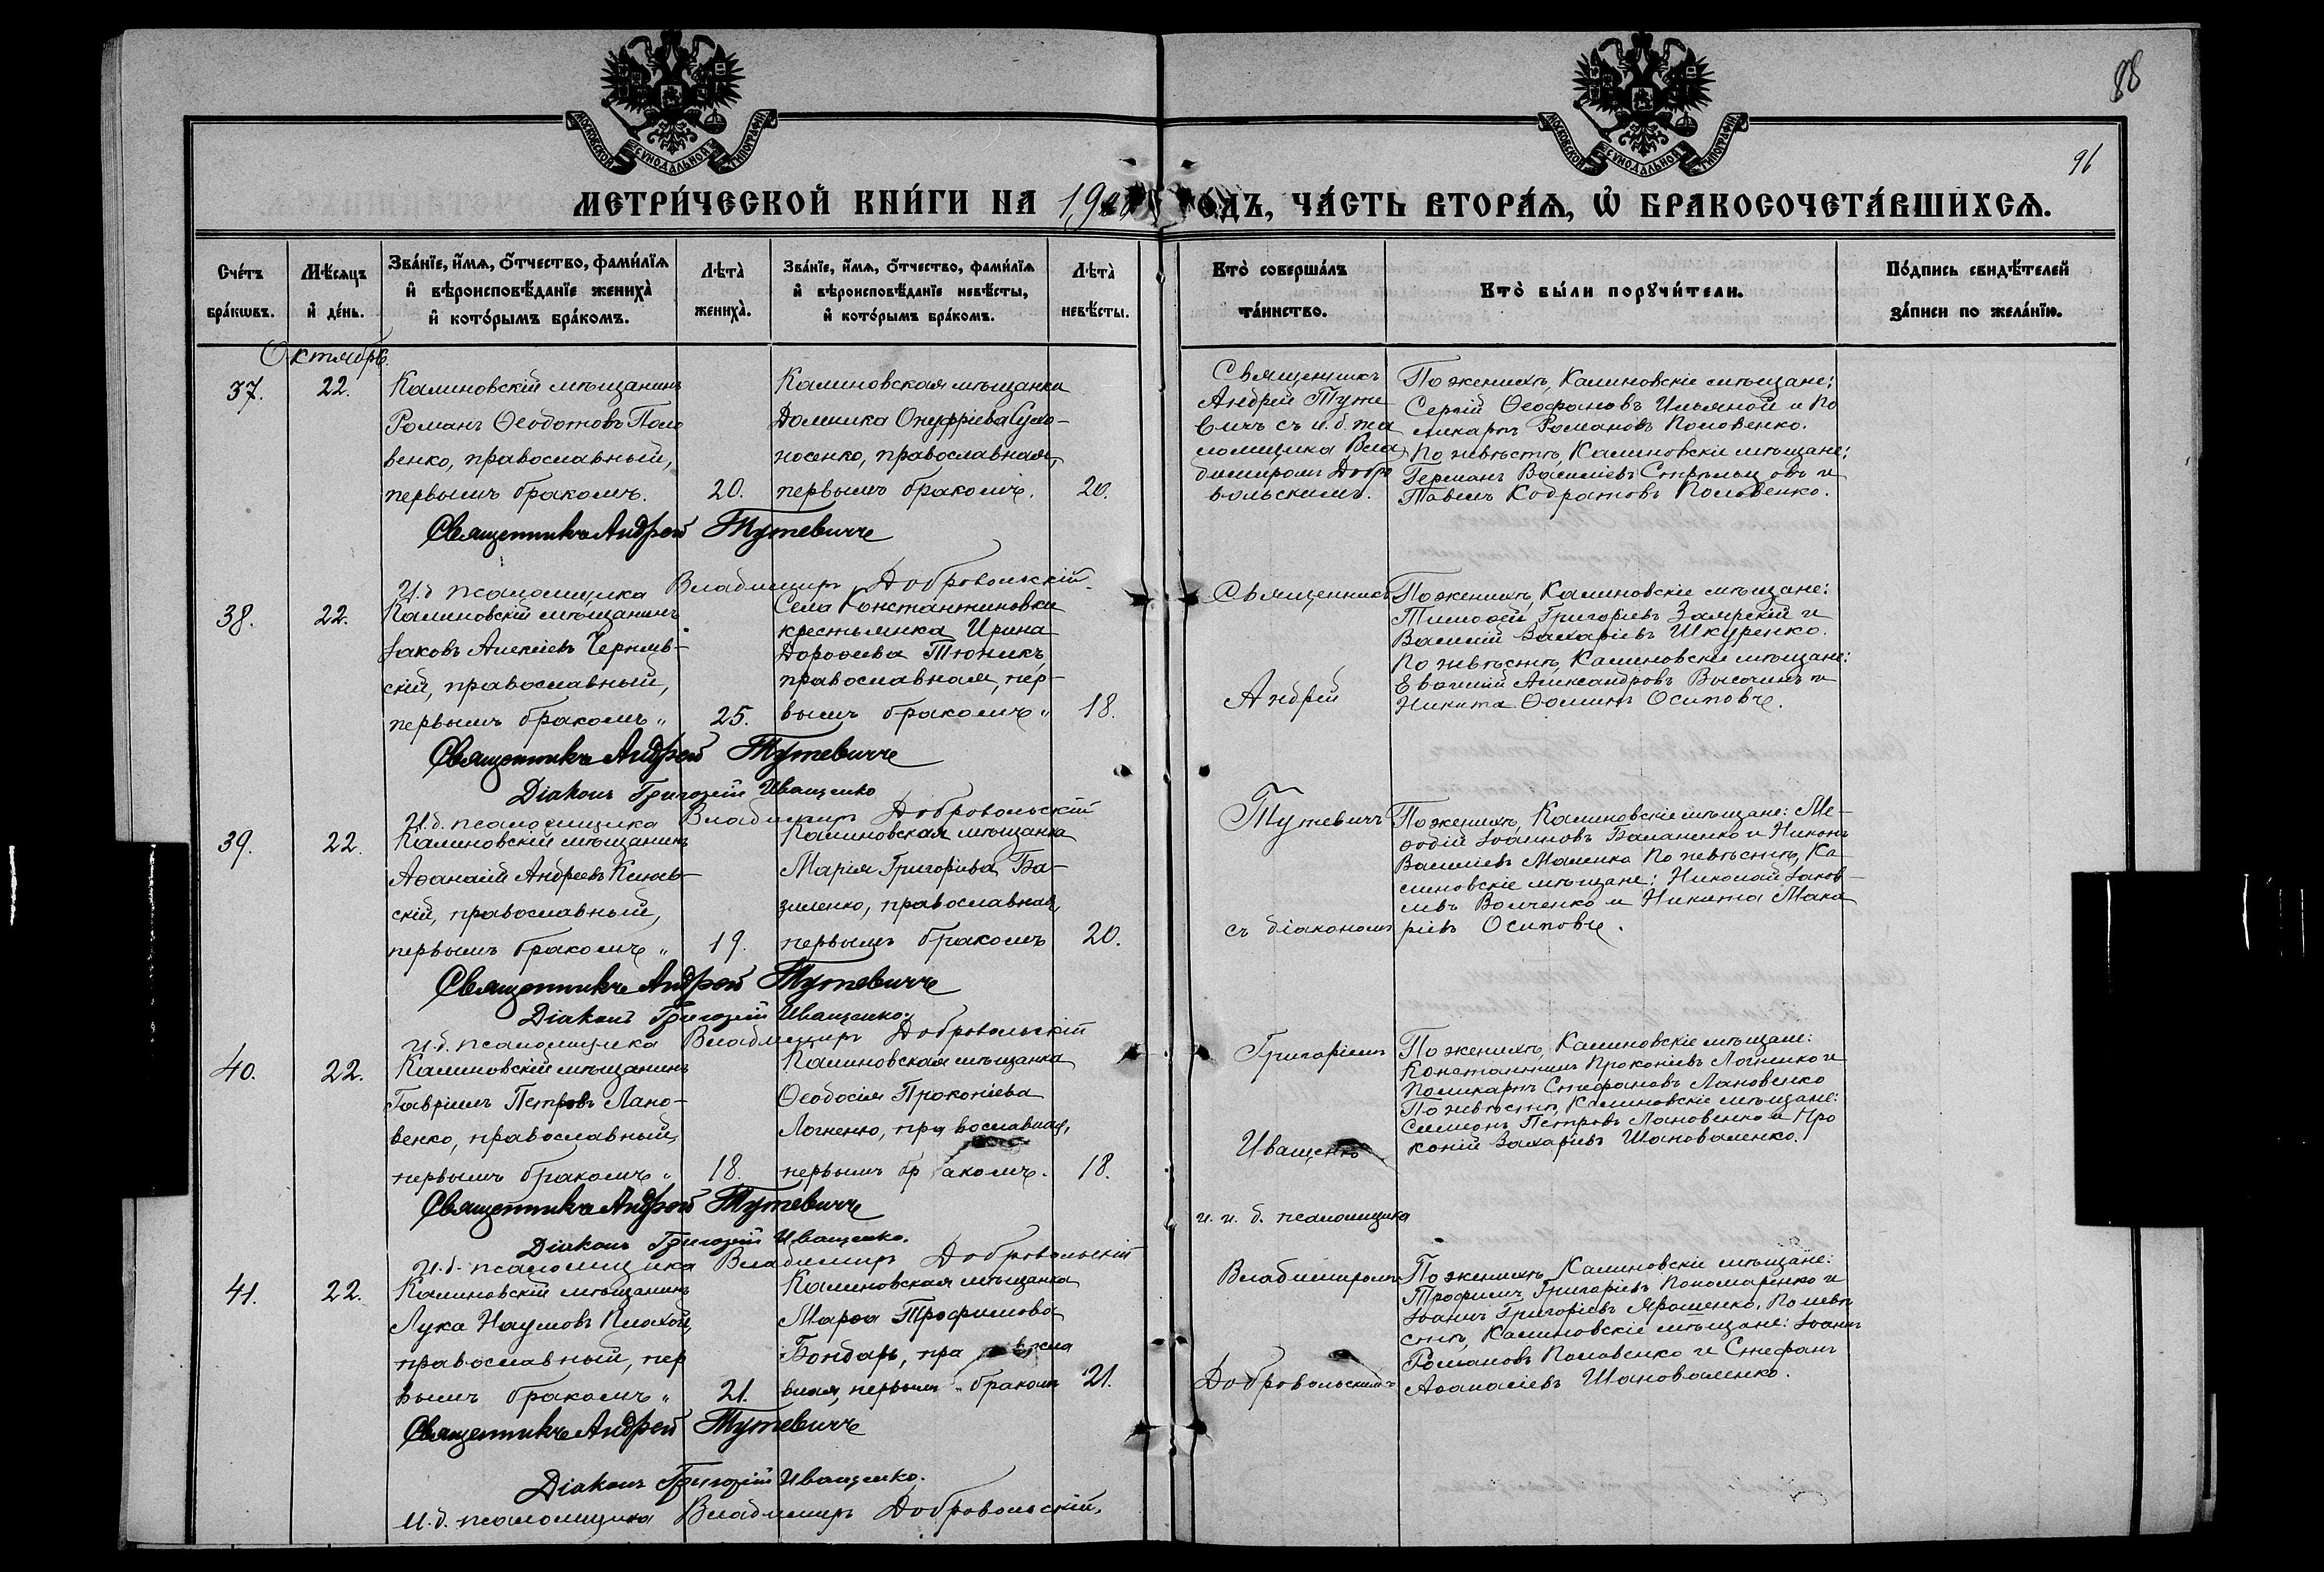 88
96
МОСКОВСКОЙ СѴНОДАЛЬНОЙ ТИПОГРАФІИ
МОСКОВСКОЙ СѴНОДАЛЬНОЙ ТИПОГРАФІИ
МЕТРИ́ЧЕСКОЙ КНИ́ГИ НА 19 ГО́ДЪ, ЧА́СТЬ ВТОРА́Ѧ, Ѡ҆ БРАКОСОЧЕТА́ВШИХСѦ.
Сче́тъ бра́кѡвъ.
Мѣ́сяцъ и҆ де́нь.
Зва́нїе, и҆́мѧ, ѻ҆́тчество, фами́лїѧ и҆ вѣроисповѣ́данїе жениха̀ и҆ кото́рымъ бра́комъ.
Лѣта̀ жениха̀.
Зва́нїе, и҆́мѧ, ѻ҆́тчество, фами́лїѧ и҆ вѣроисповѣ́данїе невѣ́сты, и҆ кото́рымъ бра́комъ.
Лѣта̀ невѣ́сты.
Кто̀ соверша́лъ та́инство.
Кто̀ бы́ли порꙋчи́тели.
По́дпись свидѣ́телей за́писи по жела́нїю.
Октябрь.
37.
22.
Калиновскій мѣщанинъ
Романъ Ѳеодотовъ Поло
венко, православный,
первымъ бракомъ.
20.
Калиновская мѣщанка
Домника Онуфріева Сухо-
носенко, православная,
первымъ бракомъ.
20.
Священникъ
Андрей Туте
вичъ съ и.д. пса
ломщика Вла
диміромъ Добро
вольскимъ.
По женихѣ, Калиновскіе мѣщане;
Сергій Ѳеофановъ Ильяной и По
ликарпъ Романовъ Половенко.
По невѣстѣ, Калиновскіе мѣщане:
Германъ Василіевъ Стрѣльцовъ и
Павелъ Кодратовъ Половенко.
Священникъ Андрей Тутевичъ
И.д. псаломщика Владиміръ Добровольскій.
38.
22.
Калиновскій мѣщанинъ
Іаковъ Алексіевъ Черняв-
скій, православный,
первымъ бракомъ„
25.
Села Константиновки
крестьянка Ирина
Дороѳеева Тюпикъ,
православная, пер-
вымъ бракомъ„
18.
Священникъ
Андрей
По женихѣ, Калиновскіе мѣщане:
Тимоѳей Григоріевъ Заярскій и
Василій Захаріевъ Шкуренко.
По невѣстѣ, Калиновскіе мѣщане:
Евѳимій Александровъ Высочинъ и
Никита Ѳоминъ Осиповъ.
Священникъ Андрей Тутевичъ
Діаконъ Григорій Иващенко
И.д. псаломщика Владиміръ Добровольскій
39.
22.
Калиновскій мѣщанинъ
Аѳанасій Андреевъ
скій, православный,
первымъ бракомъ„
19.
Калиновская мѣщанка
Марія Григоріева Ба-
зиленко, православная,
первымъ бракомъ
20.
Тутевичъ
съ діакономъ
По женихѣ, Калиновскіе мѣщане: Ме-
ѳодій Іоанновъ Баланенко и Никонъ
Василіевъ Маленко По невѣстѣ, Ка-
линовскіе мѣщане: Николай Іаков-
левъ Волченко и Никита Мака
ріевъ Осиповъ.
Священникъ Андрей Тутевичъ
Діаконъ Григорій Иващенко.
И.д. псаломщика Владиміръ Добровольскій
40.
22.
Калиновскій мѣщанинъ
Гавріилъ Петровъ Лано-
венко, православный,
первымъ бракомъ„
18.
Калиновская мѣщанка
Ѳеодосія Прокопіева
Логненко, православная,
первымъ бракомъ.
18.
Григоріемъ
Иващенко
и. и. д. псаломщика
По женихѣ, Калиновскіе мѣщане:
Константинъ Прокопіевъ Логненко и
Поликарпъ Стефановъ Лановенко
По невѣстѣ, Калиновскіе мѣщане:
Симеонъ Петровъ Лановенко и Про
копій Захаріевъ Шаповаленко.
Священникъ Андрей Тутевичъ
Діаконъ Григорій Иващенко.
И.д. псаломщика Владиміръ Добровольскій
41.
22.
Калиновскій мѣщанинъ
Лука Наумовъ Плохой,
православный, пер
вымъ бракомъ„
21.
Калиновская мѣщанка
Марѳа Трофимова
Бондарь, правосла
вная, первымъ бракомъ
21.
Владиміромъ
Добровольскимъ
По женихѣ, Калиновскіе мѣщане:
Трофимъ Григоріевъ Пономаренко и
Іоаннъ Григоріевъ Ярошенко. По невѣ
стѣ, Калиновскіе мѣщане: Іоаннъ
Романовъ Половенко и Стефанъ
Аѳанасіевъ Шаповаленко.
Священникъ Андрей Тутевичъ
Діаконъ Григорій Иващенко.
И.д. псаломщика Владиміръ Добровольскій.